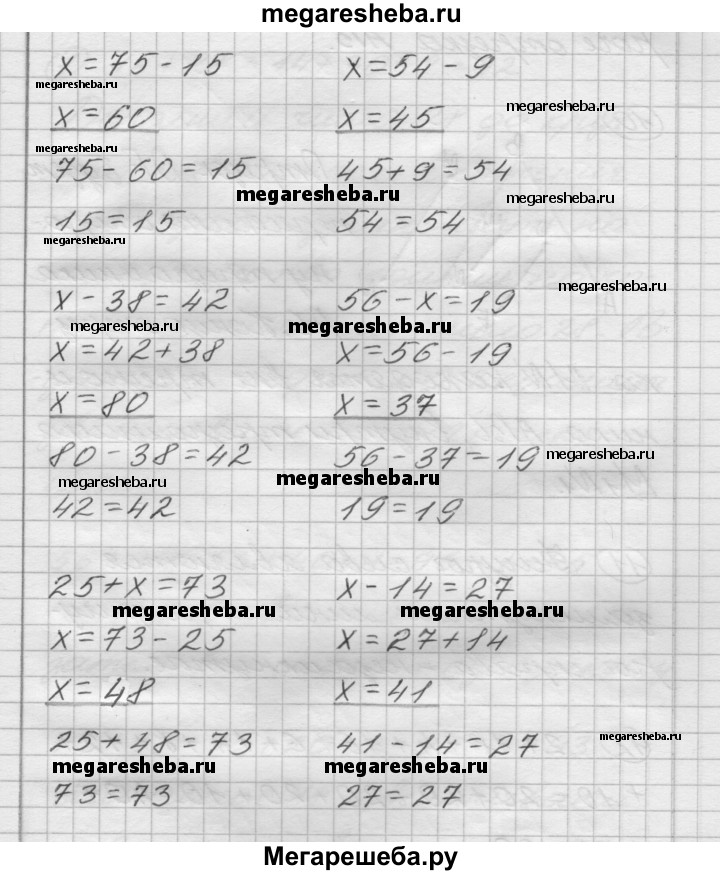 megaresheba.ru
x = 75 - 15 x = 54 - 9
megaresheba.ru
x = 60 x = 45 megaresheba.ru
megaresheba.ru
75 - 60 = 15 45 + 9 = 54
megaresheba.ru megaresheba.ru
15 = 15 54 = 54
megaresheba.ru
megaresheba.ru
x - 38 = 42 56 - x = 19
megaresheba.ru megaresheba.ru
x = 42 + 38 x = 56 - 19
x = 80 x = 37
80 - 38 = 42 56 - 37 = 19 megaresheba.ru
megaresheba.ru megaresheba.ru
42 = 42 19 = 19
25 + x = 73 x - 14 = 27
megaresheba.ru megaresheba.ru
x = 73 - 25 x = 27 + 14
x = 48 x = 41
megaresheba.ru
25 + 48 = 73 41 - 14 = 27
megaresheba.ru megaresheba.ru
73 = 73 27 = 27
Мегарешеба.ру